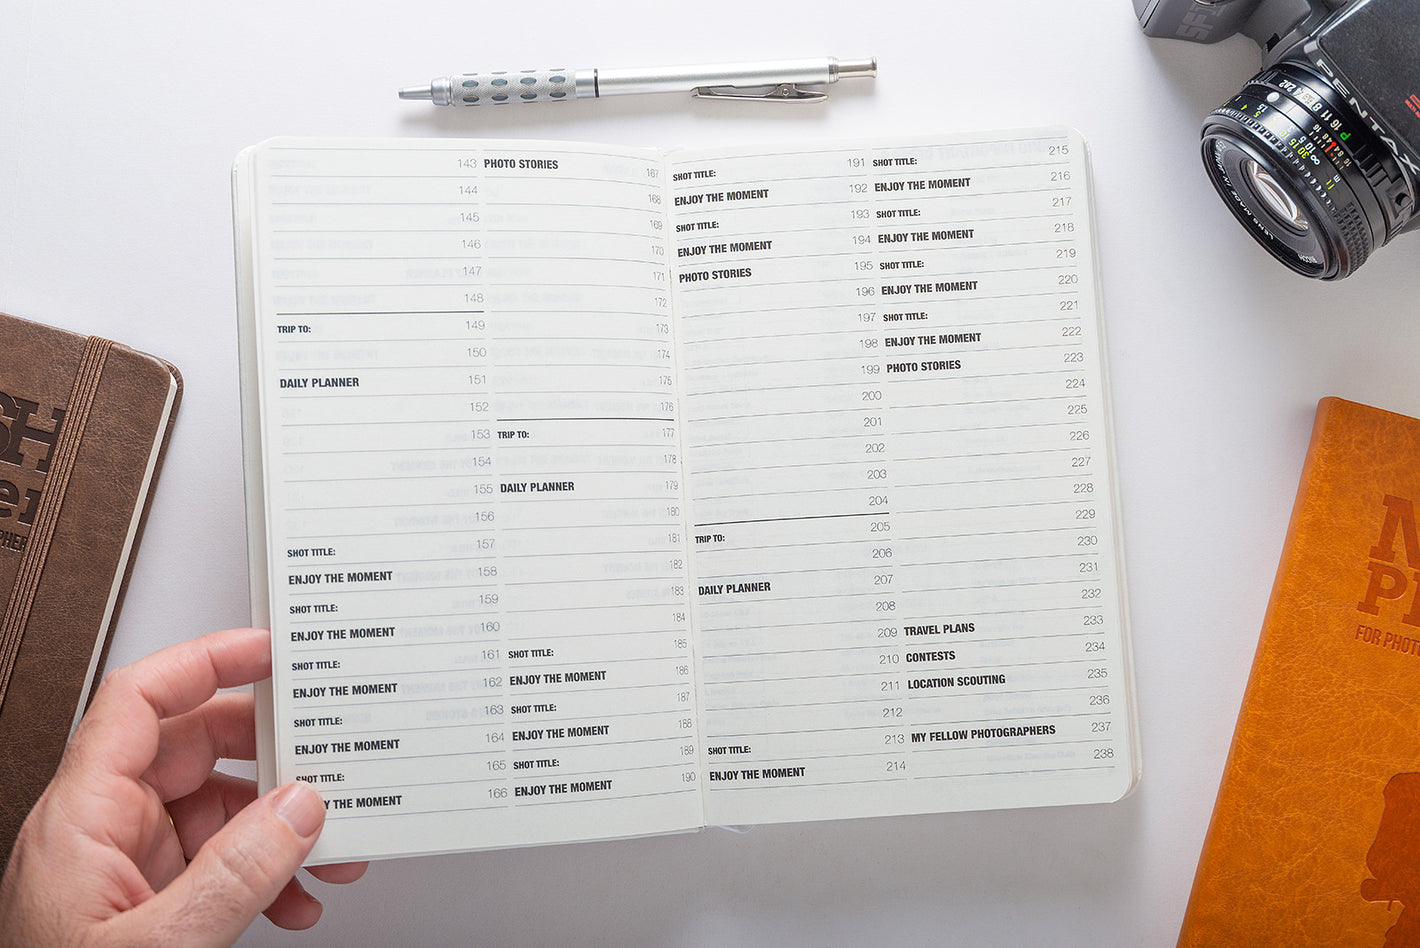 143
144
145
146
147
148
TRIP TO: 149
150
DAILY PLANNER 151
152
153
154
155
156
SHOT TITLE: 157
ENJOY THE MOMENT 158
SHOT TITLE: 159
ENJOY THE MOMENT 160
SHOT TITLE: 161
ENJOY THE MOMENT 162
SHOT TITLE: 163
ENJOY THE MOMENT 164
SHOT TITLE: 165
THE MOMENT 166
PHOTO STORIES 167
168
169
170
171
172
173
174
175
176
TRIP TO: 177
178
DAILY PLANNER 179
180
181
182
183
184
SHOT TITLE: 185
ENJOY THE MOMENT 186
SHOT TITLE: 187
ENJOY THE MOMENT 188
SHOT TITLE: 189
ENJOY THE MOMENT 190
SHOT TITLE: 191
ENJOY THE MOMENT 192
SHOT TITLE: 193
ENJOY THE MOMENT 194
PHOTO STORIES 195
196
197
198
199
200
201
202
203
204
TRIP TO: 205
206
DAILY PLANNER 207
208
209
210
211
212
SHOT TITLE: 213
ENJOY THE MOMENT 214
SHOT TITLE: 215
ENJOY THE MOMENT 216
SHOT TITLE: 217
ENJOY THE MOMENT 218
SHOT TITLE: 219
ENJOY THE MOMENT 220
SHOT TITLE: 221
ENJOY THE MOMENT 222
PHOTO STORIES 223
224
225
226
227
228
229
230
231
232
TRAVEL PLANS 233
CONTESTS 234
LOCATION SCOUTING 235
236
MY FELLOW PHOTOGRAPHERS 237
238
PENTAX
FOR